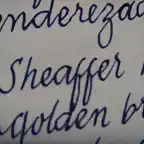 enderezad
Sheaffer
golden br